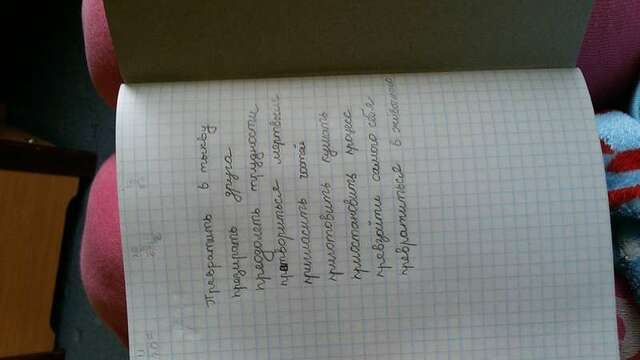 Превратить в тыкву
презирать друга
преодолеть трудности
притвориться мертвым
пригласить гостей
приготовить кушать
приостановить процесс
превзойти самого себя
превратиться в животное